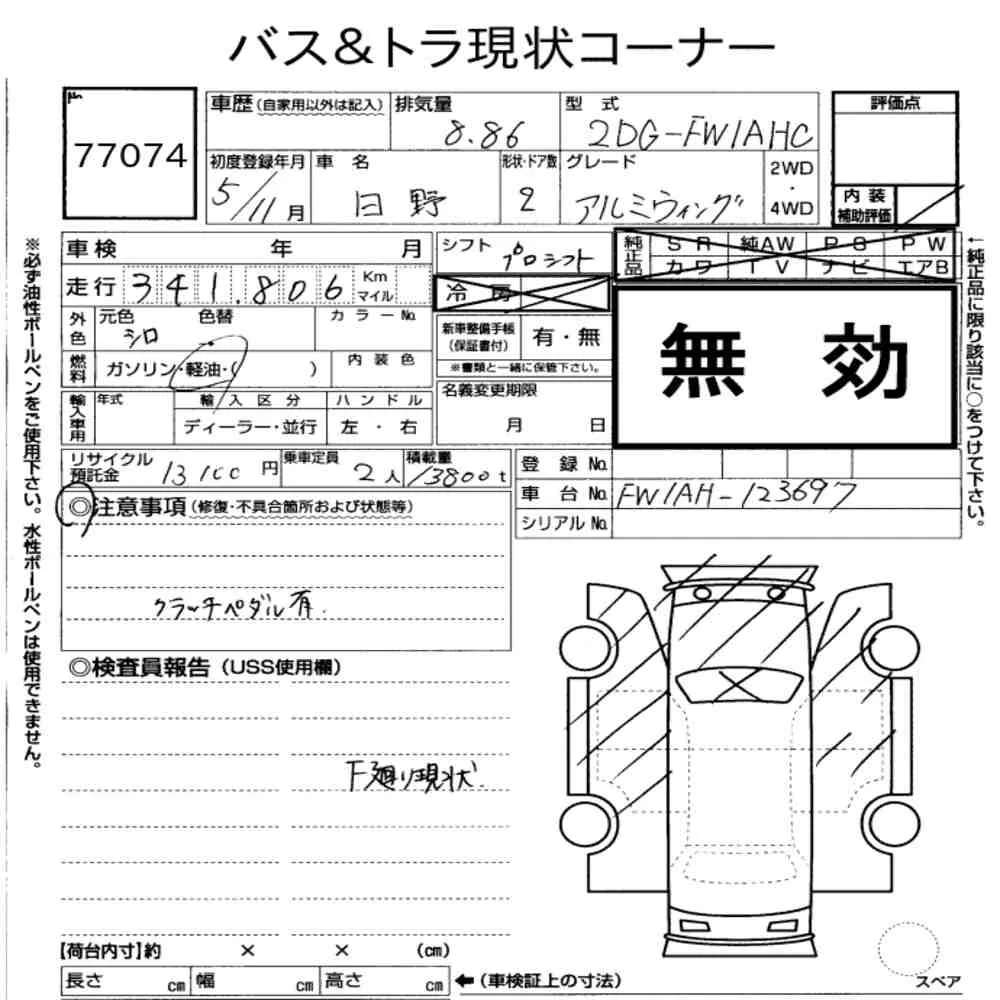 バス&トラ現状コーナー
77074
車歴(自家用以外は記入)
排気量
8.86
型 式
2DG-FW1AHC
評価点
初度登録年月
5/11月
車 名
日野
形状・ドア数
2
グレード
アルミウィング
2WD
・
4WD
内装
補助評価
※必ず油性ボールペンをご使用下さい。水性ボールペンは使用できません。
車検 年 月
シフト
プロシフト
純正品
SR 純AW PS PW
カワ TV ナビ エアB
←純正品に限り該当に○をつけて下さい。
走行 341.806 Km
マイル
冷房
無 効
外色
元色
シロ
色替
カラーNo.
新車整備手帳
(保証書付)
有・無
※書類と一緒に保管下さい。
燃料
ガソリン・軽油・( )
内装色
名義変更期限
月 日
輸入車用
年式
輸入区分
ハンドル
ディーラー・並行
左・右
リサイクル
預託金
13100円
乗車定員
2人
積載量
13800t
登録No.
車台No. FW1AH-123697
シリアルNo.
◎注意事項(修復・不具合箇所および状態等)
クラッチペダル有.
◎検査員報告(USS使用欄)
下廻り現状.
【荷台内寸】約 × × (cm)
長さ cm 幅 cm 高さ cm ←(車検証上の寸法)
スペア